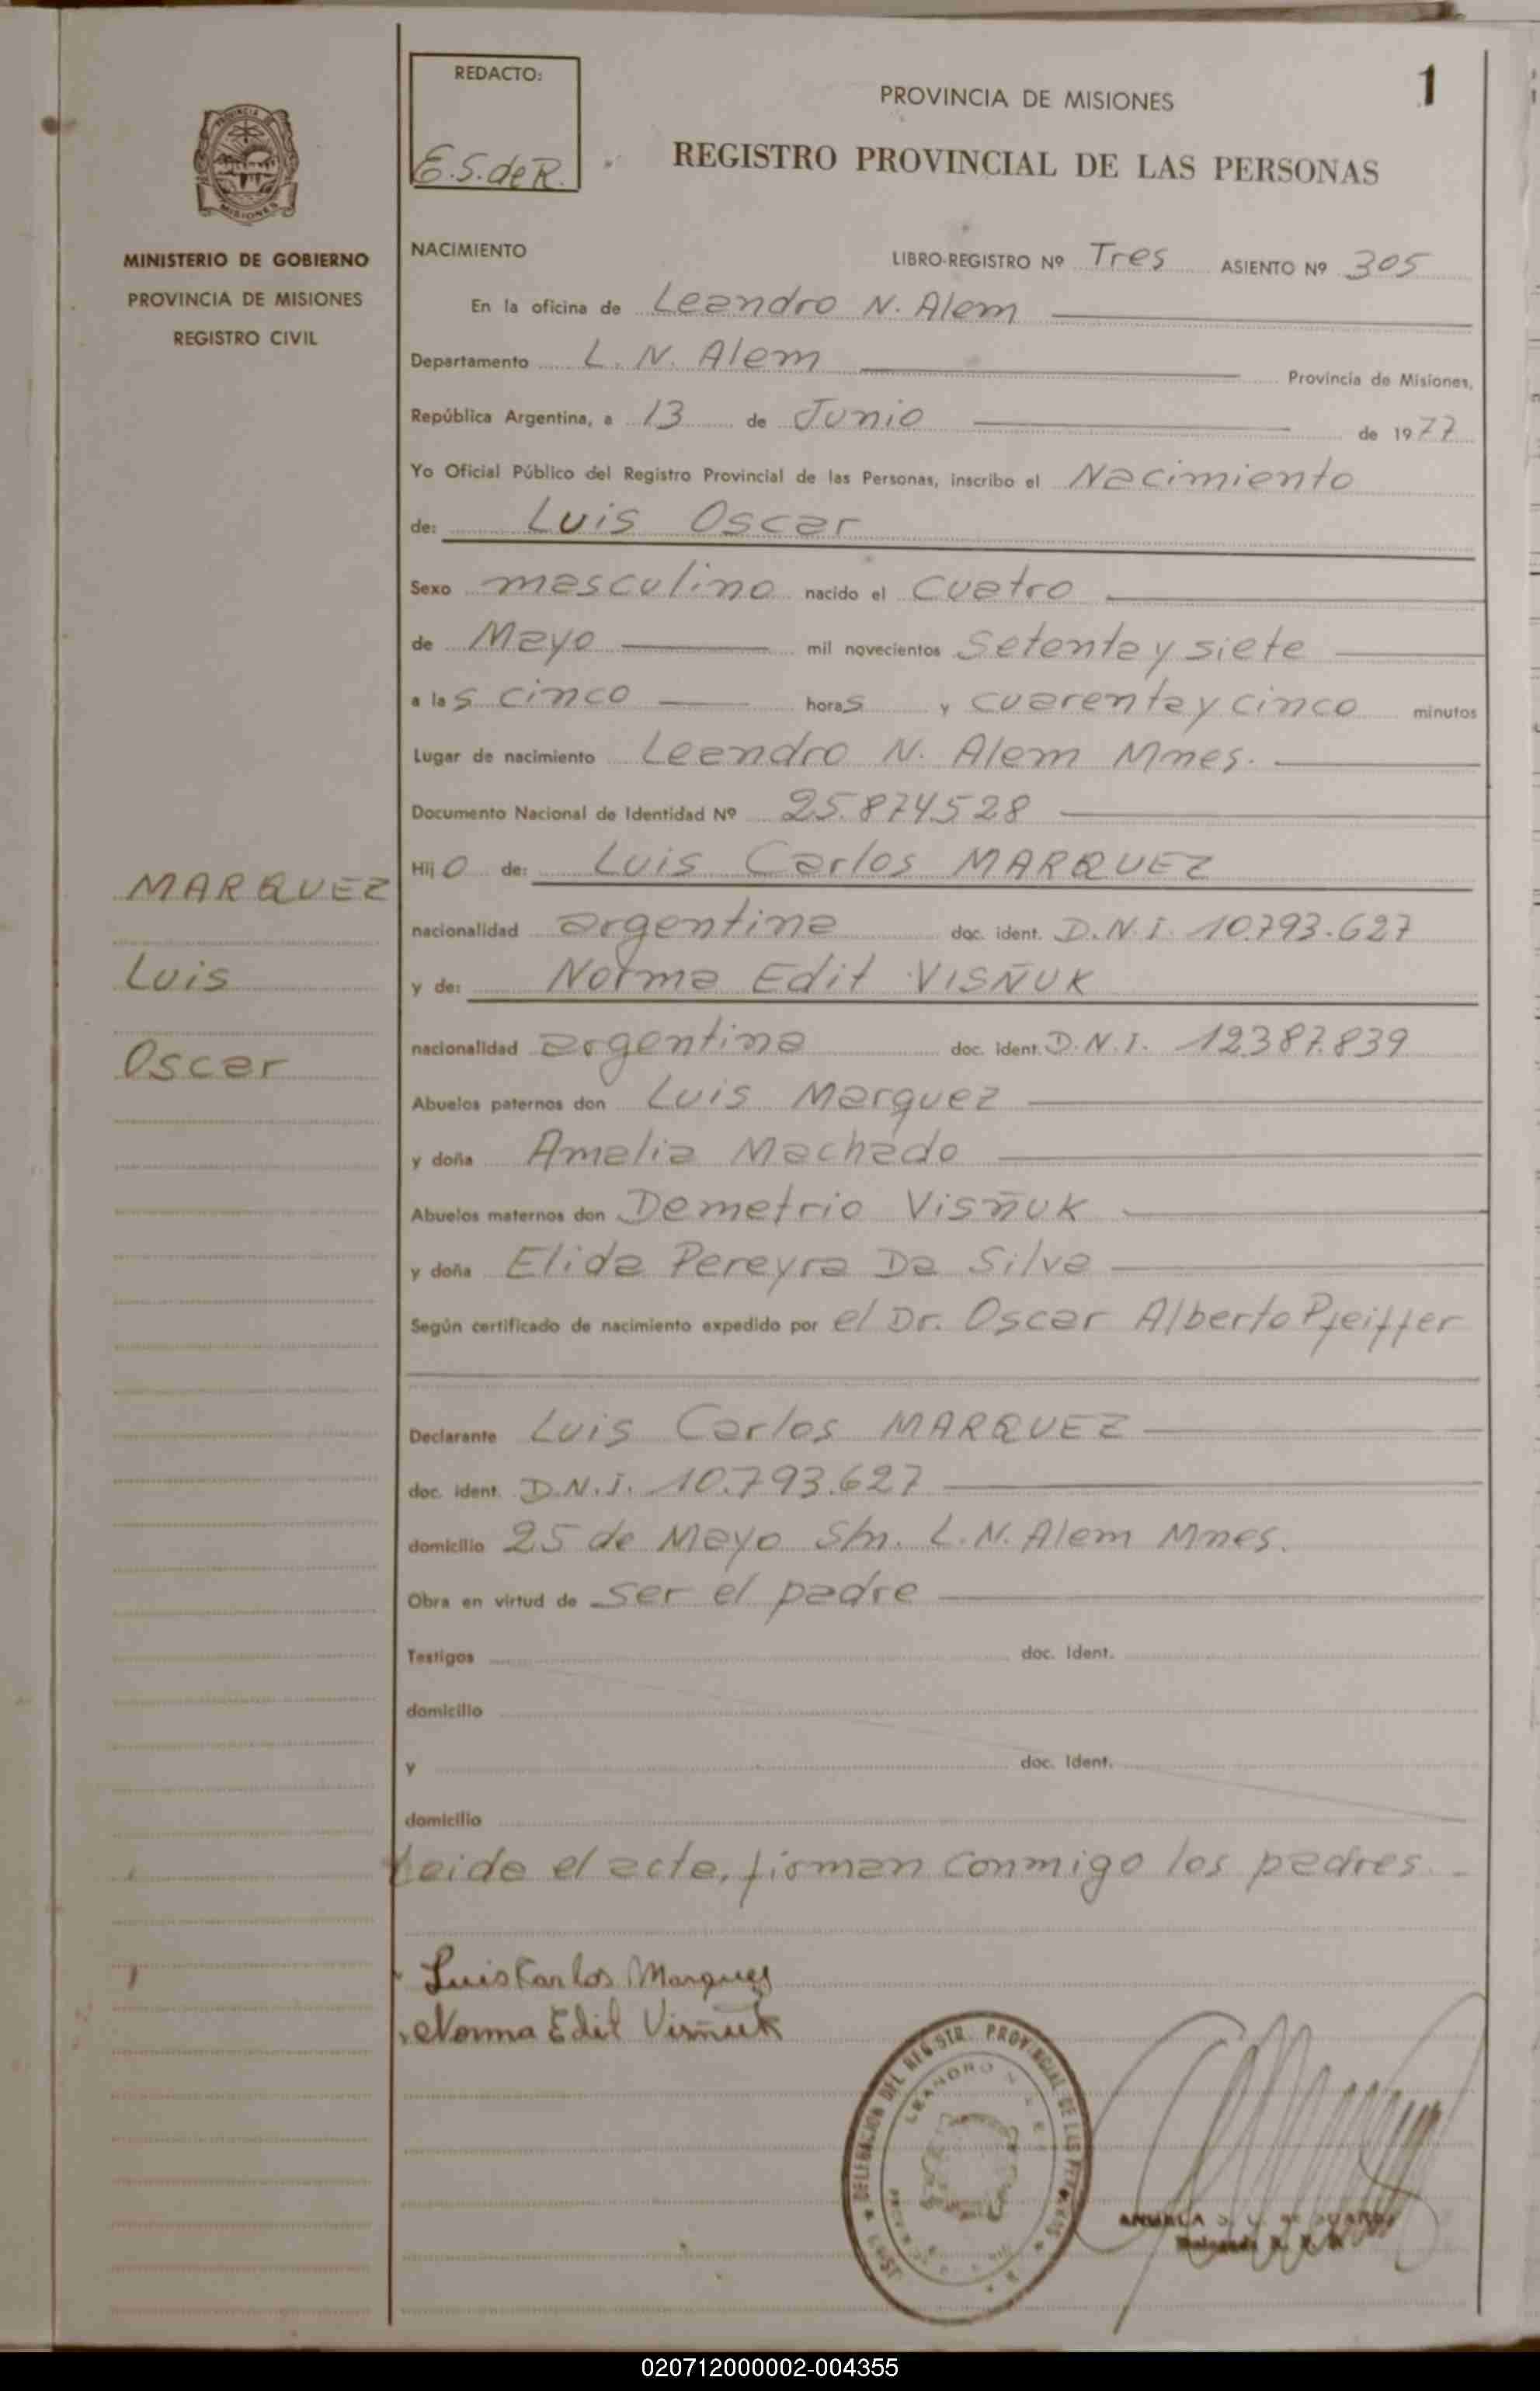 REDACTO:
E.S.deR.
PROVINCIA DE MISIONES
1
REGISTRO PROVINCIAL DE LAS PERSONAS
MISIONES
MINISTERIO DE GOBIERNO
PROVINCIA DE MISIONES
REGISTRO CIVIL
NACIMIENTO
LIBRO-REGISTRO Nº Tres ASIENTO Nº 305
En la oficina de Leandro N. Alem
Departamento L. N. Alem Provincia de Misiones,
República Argentina, a 13 de Junio de 1977
Yo Oficial Público del Registro Provincial de las Personas, inscribo el Nacimiento
de: Luis Oscar
Sexo masculino nacido el Cuatro
de Mayo mil novecientos Setenta y siete
a las cinco horas y cuarenta y cinco minutos
Lugar de nacimiento Leandro N. Alem Mnes.
Documento Nacional de Identidad Nº 25.874528
Hijo de: Luis Carlos MARQUEZ
MARQUEZ
nacionalidad argentina doc. ident. D.N.I. 10.793.627
Luis
y de: Norma Edit VISÑUK
nacionalidad argentina doc. ident. D.N.I. 12.387.839
Oscar
Abuelos paternos don Luis Marquez
y doña Amalia Machado
Abuelos maternos don Demetrio Visñuk
y doña Elida Pereyra Da Silva
Según certificado de nacimiento expedido por el Dr. Oscar Alberto Pfeiffer
Declarante Luis Carlos MARQUEZ
doc. ident. D.N.I. 10.793.627
domicilio 25 de Mayo S/n. L.N. Alem Mnes.
Obra en virtud de ser el padre
Testigos doc. Ident.
domicilio
y doc. Ident.
domicilio
Leida el acta, firman conmigo los padres.
Luis Carlos Marquez
Norma Edit Visñuk
DELEGACION DEL REGISTR. PROVINCIAL DE LAS PERSONAS
LEANDRO N.
020712000002-004355